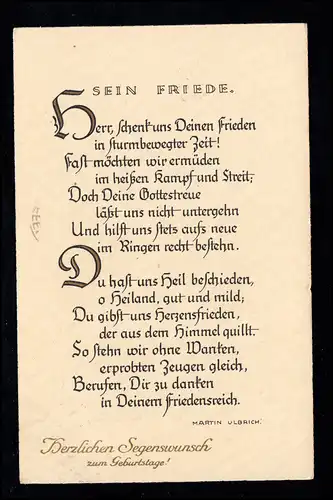 SEIN FRIEDE.
Herr, schenk uns Deinen Frieden
in sturmbewegter Zeit!
Fast möchten wir ermüden
im heißen Kampf und Streit;
Doch Deine Gottestreue
läßt uns nicht untergehn
Und hilft uns stets aufs neue
im Ringen recht bestehn.
Du hast uns Heil beschieden,
o Heiland, gut und mild;
Du gibst uns Herzensfrieden,
der aus dem Himmel quillt.
So stehn wir ohne Wanken,
erprobten Zeugen gleich,
Berufen, Dir zu danken
in Deinem Friedensreich.
MARTIN ULBRICH.
Herzlichen Segenswunsch
zum Geburtstage!